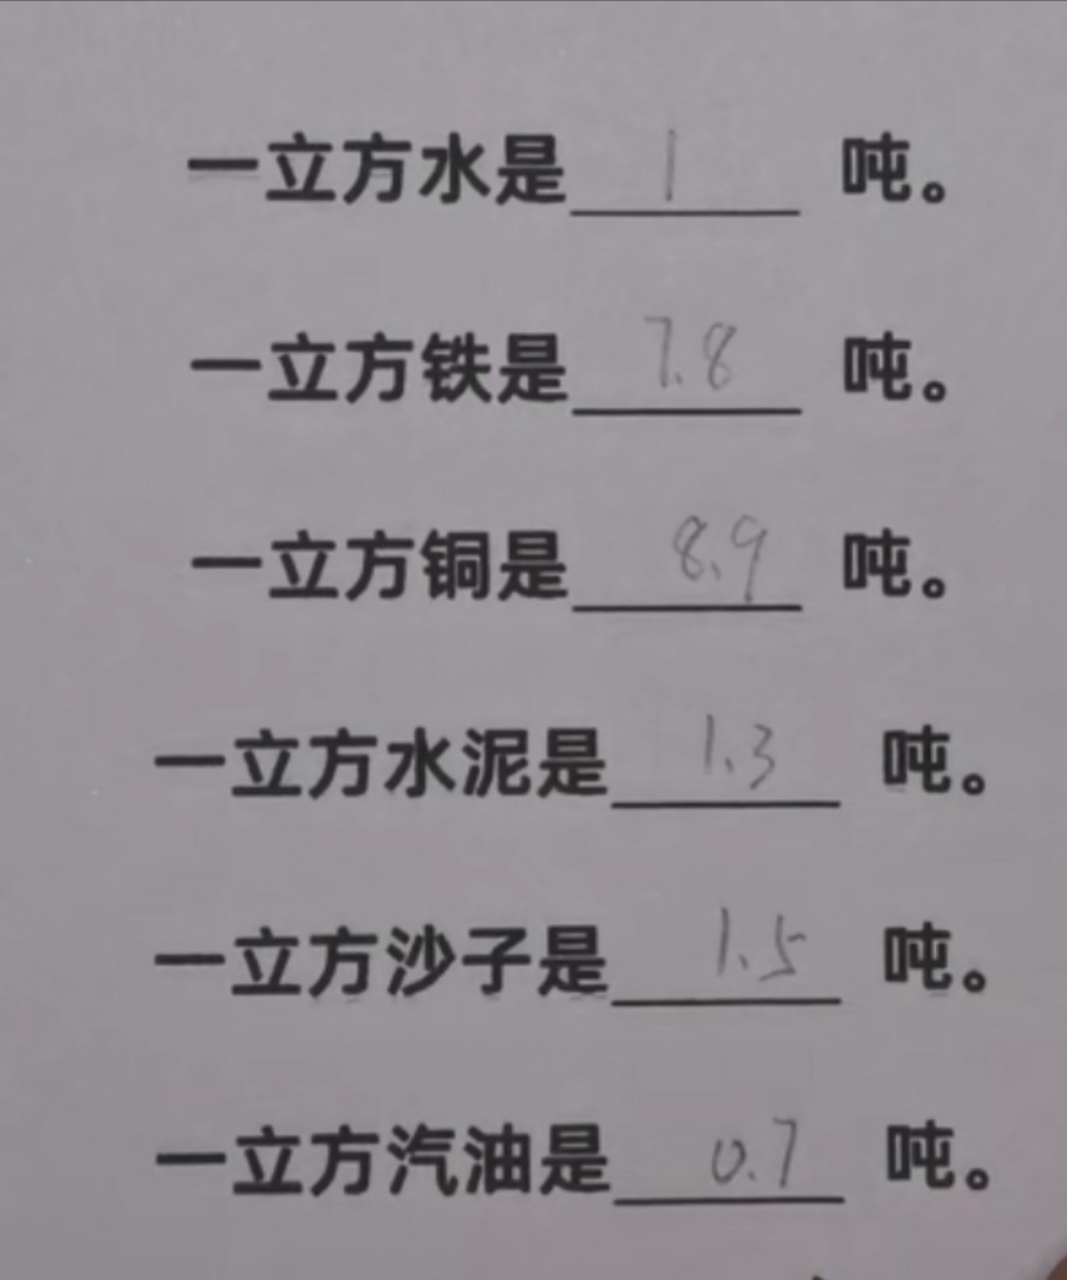 一立方水是 1 吨。
一立方铁是 7.8 吨。
一立方铜是 8.9 吨。
一立方水泥是 1.3 吨。
一立方沙子是 1.5 吨。
一立方汽油是 0.7 吨。